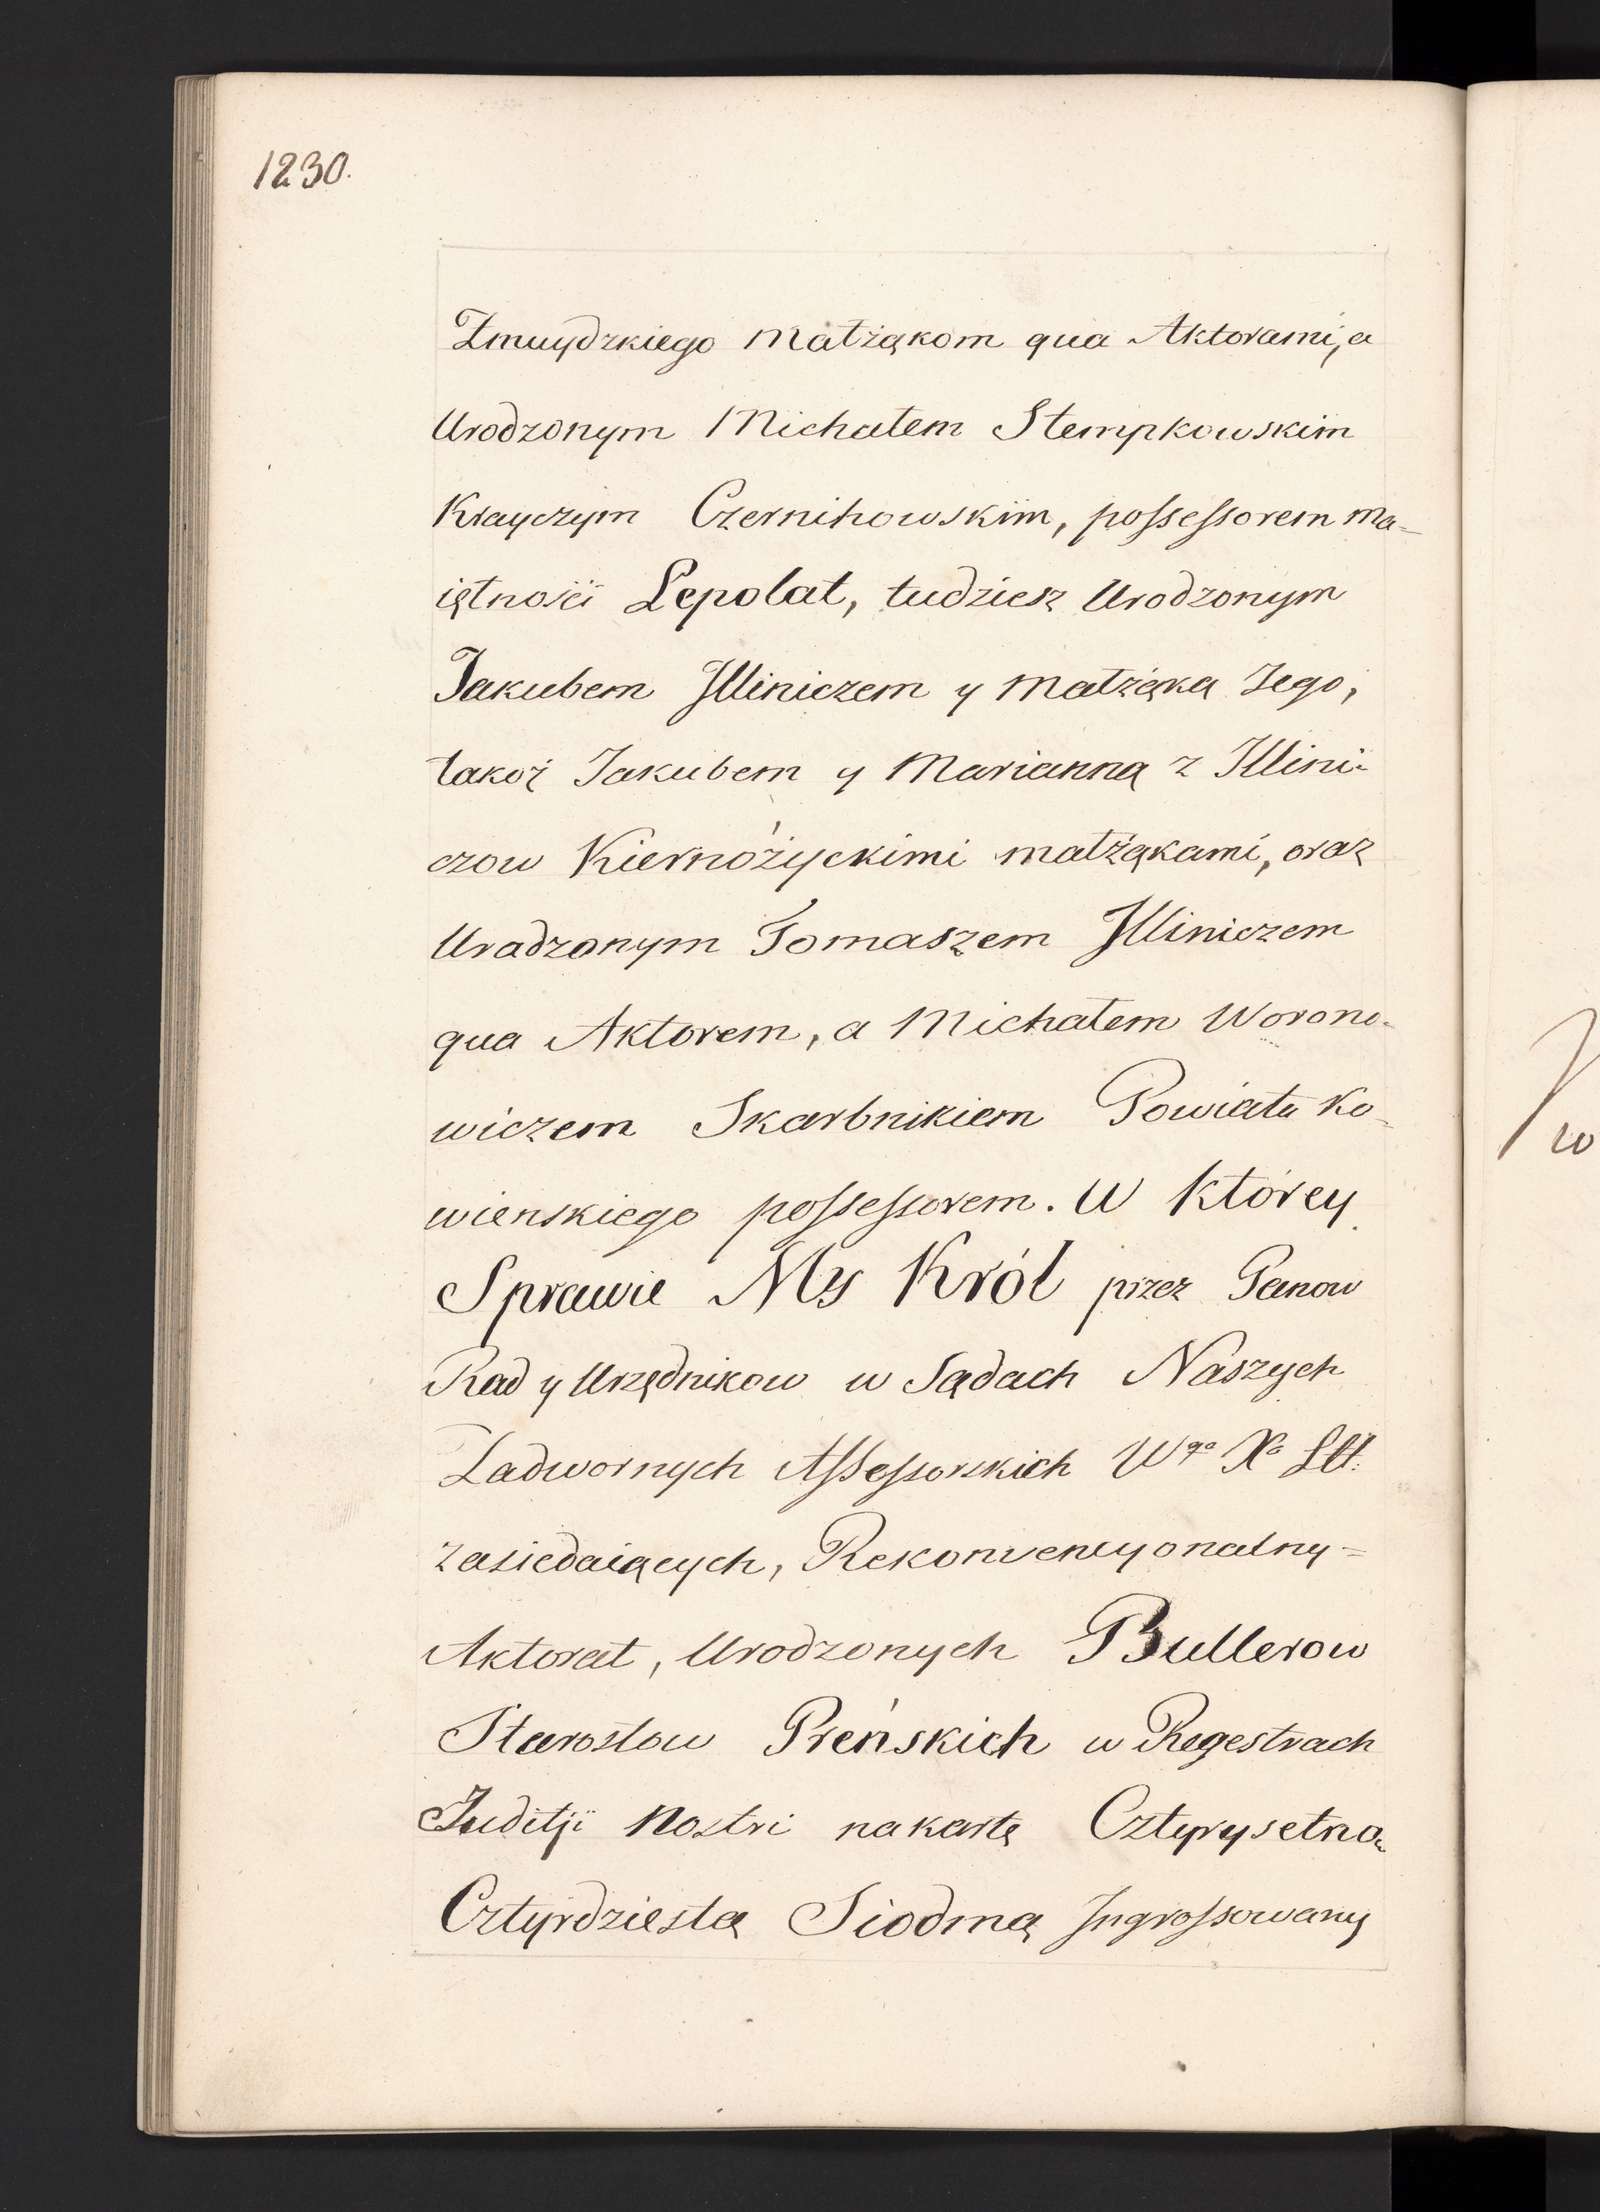 1230.
Żmuydzkiego Małżąkom qua Aktorami, a
Urodzonym Michałem Stempkowskim
Krayczym Czernihowskim, possessorem ma=
iętności Lepolat, tudziesz Urodzonym
Jakubem Illiniczem y Małżąką Jego,
takoż Jakubem y Marianną z Illini-
czow Kiernożyckimi małżąkami, oraz
Uradzonym Tomaszem Illiniczem
qua Aktorem, a Michałem Worono-
wiczem Skarbnikiem Powiatu Ko-
wienskiego possessorem. W którey
Sprawie My Król przez Panow
Rad y Urzędnikow w Sądach Naszych
Zadwornych Assessorskich Wgo Xa Litt.
zasiedaiących, Rekonwencyonalny=
Aktorat, Urodzonych Bullerow
Starostow Preńskich w Regestrach
Juditji Nostri na kartę Cztyrysetną
Cztyrdziestą Siodmą Ingrossowany
w